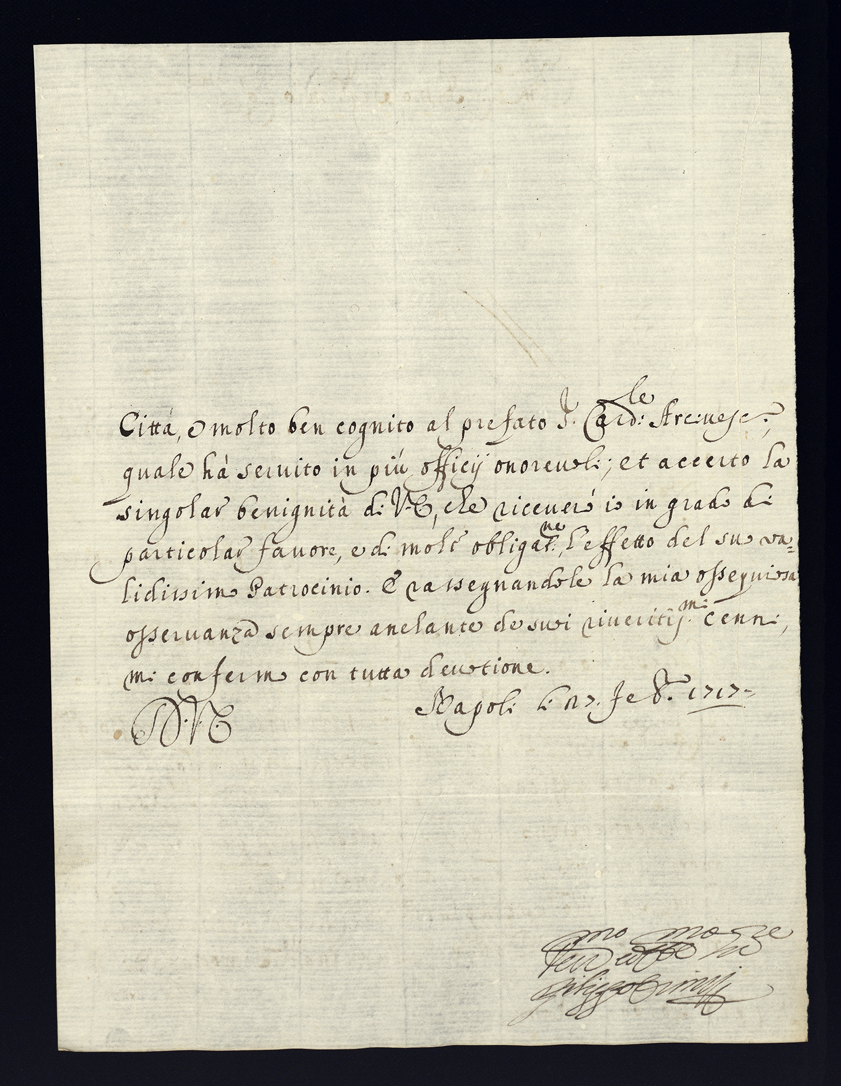 Città, e molto ben cognito al prefato S. Card:le Arciuesc:,
quale hà seruito in più officij onoreuoli; et accerto la
singolar benignità di V. E., che riceuerò io in grado di
particolar fauore, e di molt' obligat.ne, l'effetto del suo va=
lidissimo Patrocinio. E rassegnandole la mia ossequiosa
osseruanza sempre anelante de suoi riueritiss.mi Cenni,
mi confermo con tutta deuotione.
D. V. E.
Napoli li 27. 1717.
Filippo